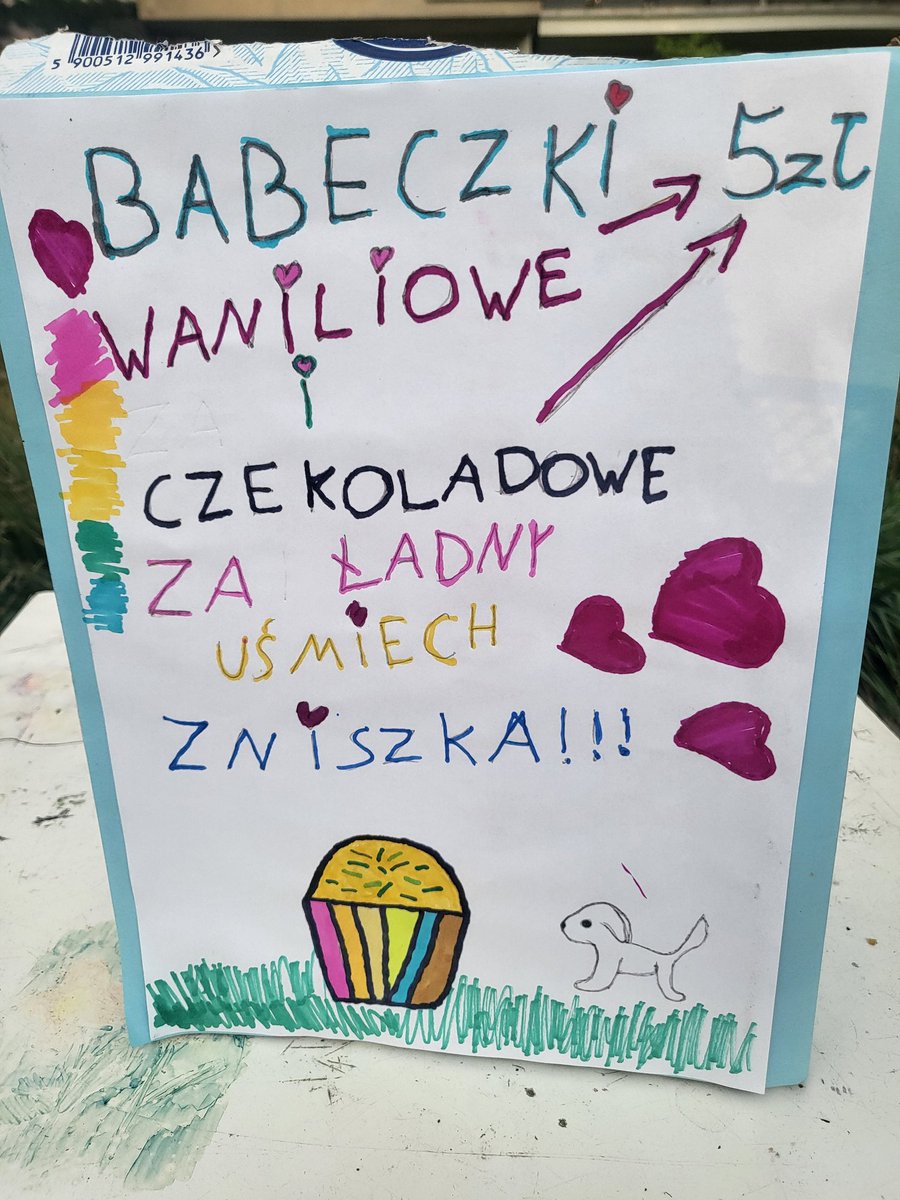 5 900512 991436 >
BABECZKI 5zł
WANILIOWE
i
CZEKOLADOWE
ZA ŁADNY
UŚMIECH
ZNISZKA!!!